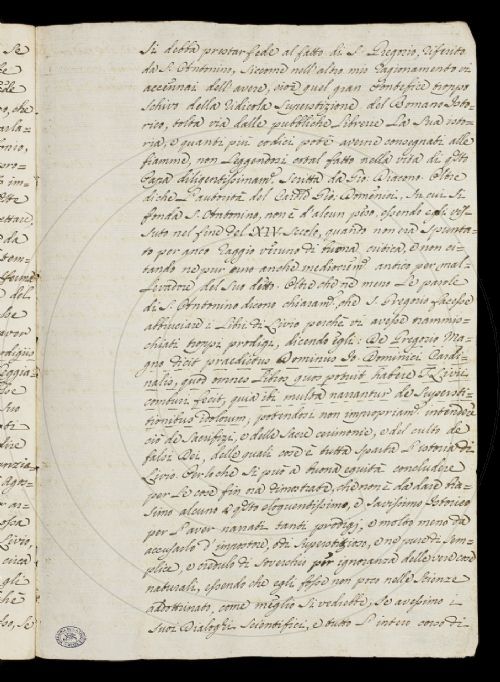 si debba prestar fede al fatto di S. Gregorio, riferito
da S. Antonino, siccome nell'altro mio Ragionamento vi
accennai dell'avere, cioè quel gran Pontefice troppo
schivo della ridicola Superstizione del Romano Isto=
rico, tolta via dalle pubbliche Librerie La Sua isto=
ria, e quanti piu codici potè averne consegnati alle
fiamme, non Leggendosi cotal fatto nella vita di
Papa diligentissimam. Scritta da Gio: Diacono. Oltre
di che L'autorità del Gio: Domenici, su cui si
fonda S. Antonino, non è d'alcun peso, essendo egli vis=
suto nel fine del XIV. Secolo, quando non era spunta=
to per anco raggio veruno di buona critica, e non ci=
tando ne pur uno anche antico per mal=
levadore del suo detto. Oltre che nè meno Le parole
di S. Antonino dicono chiaram. che S. Gregorio facesse
abbruciare i Libri di Livio perchè vi avesse rammis=
chiati troppi prodigi, dicendo egli: De Gregorio Ma=
gno dicit praedictus Dominus Jo: Dominici Cardi=
nalis, quod omnes Libros quos potuit habere T. Livii
comburi fecit, quia ibi multa narrantur de Supersti=
tionibus Idolorum; potendosi non impropriam. intende
ciò de Sacrifizi, e delle Sacre cerimonie, e del culto de
falsi Dei, delle quali cose è tutta sparta L'istoria di
Livio. Perloche si può a buona equità concludere
per Le cose fin ora dimostrate, che non è da dare bia=
simo alcuno a eloquentissimo, e savissimo Istorico
per L'aver narrati tanti prodigj, e molto meno da
accusarlo d'impostore, o di Superstizioso, e ne pure di Sem=
plice, e credulo di soverchio per ignoranza delle vere cose
naturali, essendo che egli fosse non poco nelle Scienze
addottrinato, come meglio si vedrebbe, se avessimo i
suoi Dialoghi Scientifici, e tutto L'intero corso di